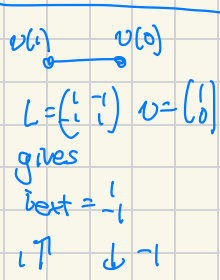 v(1) v(0)
L = (1 -1
-1 1) v = (1
0)
gives
iext = 1
-1
1 ↑ ↓ -1